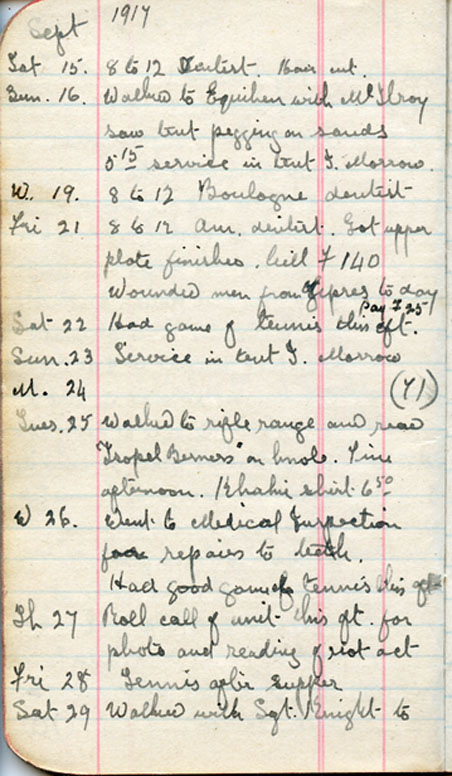 Sept 1917
Sat 15. 8 to 12 Dentist. Hair cut.
Sun. 16. Walked to Equihen with McIlroy
saw tent pegging on sands
5 15 service in tent T. Morrow.
W. 19. 8 to 12 Boulogne dentist
Fri 21 8 to 12 Am. dentist. Got upper
plate finished. bill F 140
Wounded men from Ypres to day
Pay F 25
Sat 22 Had game of tennis this aft.
Sun. 23 Service in tent T. Morrow
M. 24 (71)
Tues. 25 Walked to rifle range and read
on knole. Fine
afternoon. Khaki shirt 6 50
W 26. Went to Medical Inspection
for repairs to teeth.
Had good game of tennis this aft
Th 27 Roll call of unit this aft. for
photo and reading of riot act
Fri 28 Tennis after supper
Sat 29 Walked with Sgt. Knight to